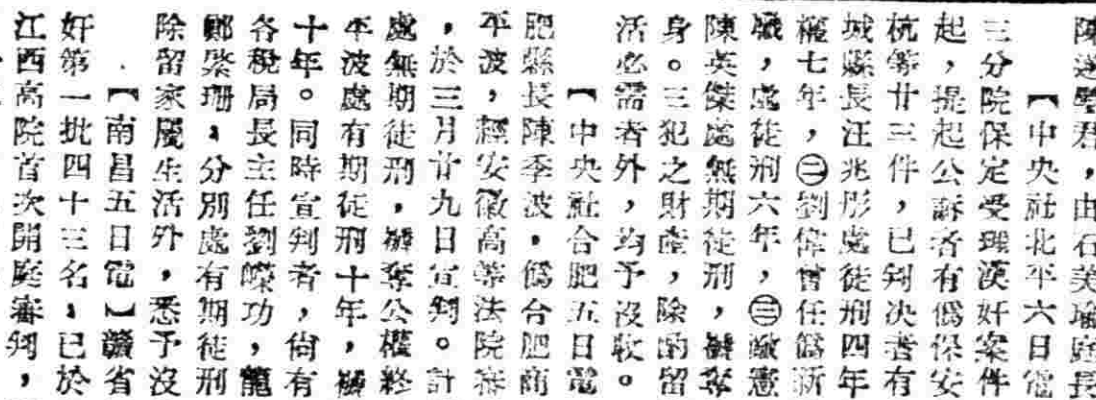 陳璧君，由石美瑜庭長
【中央社北平六日電
三分院保定受理漢奸案件
起，提起公訴者有僞保安
杭等廿三件，已判决者有
城縣長汪兆彤處徒刑四年
權七年，㊁劉偉曾任僞新
職，處徒刑六年，㊂憲
陳英傑處無期徒刑，褫奪
身。三犯之財產，除酌留
活必需者外，均予沒收。
【中央社合肥五日電
肥縣長陳季波，僞合肥商
平波，經安徽高等法院審
，於三月廿九日宣判。計
處無期徒刑，褫奪公權終
平波處有期徒刑十年，褫
十年。同時宣判者，尙有
各稅局長主任劉嶸功，龍
鄭棨珊，分別處有期徒刑
除留家屬生活外，悉予沒
【南昌五日電】贛省
奸第一批四十三名，已於
江西高院首次開庭審判，